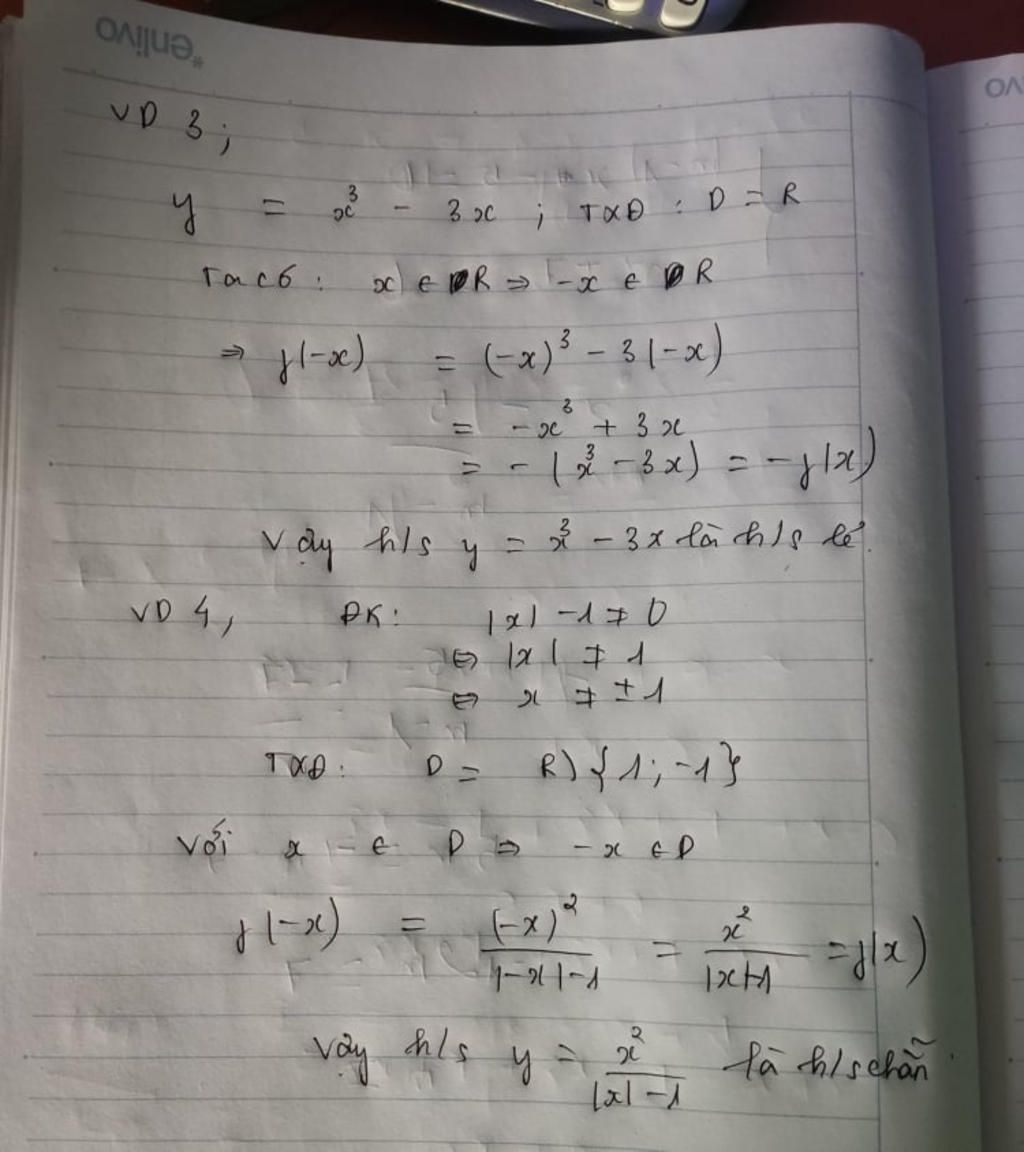 *enlivo
VD 3;
y = x³ - 3x ; TXĐ : D = R
Ta có : x ∈ R ⇒ -x ∈ R
⇒ f(-x) = (-x)³ - 3(-x)
= -x³ + 3x
= - (x³ - 3x) = -f(x)
Vậy h/s y = x³ - 3x là h/s lẻ.
VD 4, ĐK: |x| - 1 ≠ 0
⇔ |x| ≠ 1
⇔ x ≠ ± 1
TXĐ: D = R \ {1; -1}
Với x ∈ D ⇒ -x ∈ D
f(-x) = (-x)² / |-x| - 1 = x² / |x|-1 = f(x)
Vậy h/s y = x² / |x| - 1 là h/s chẵn.